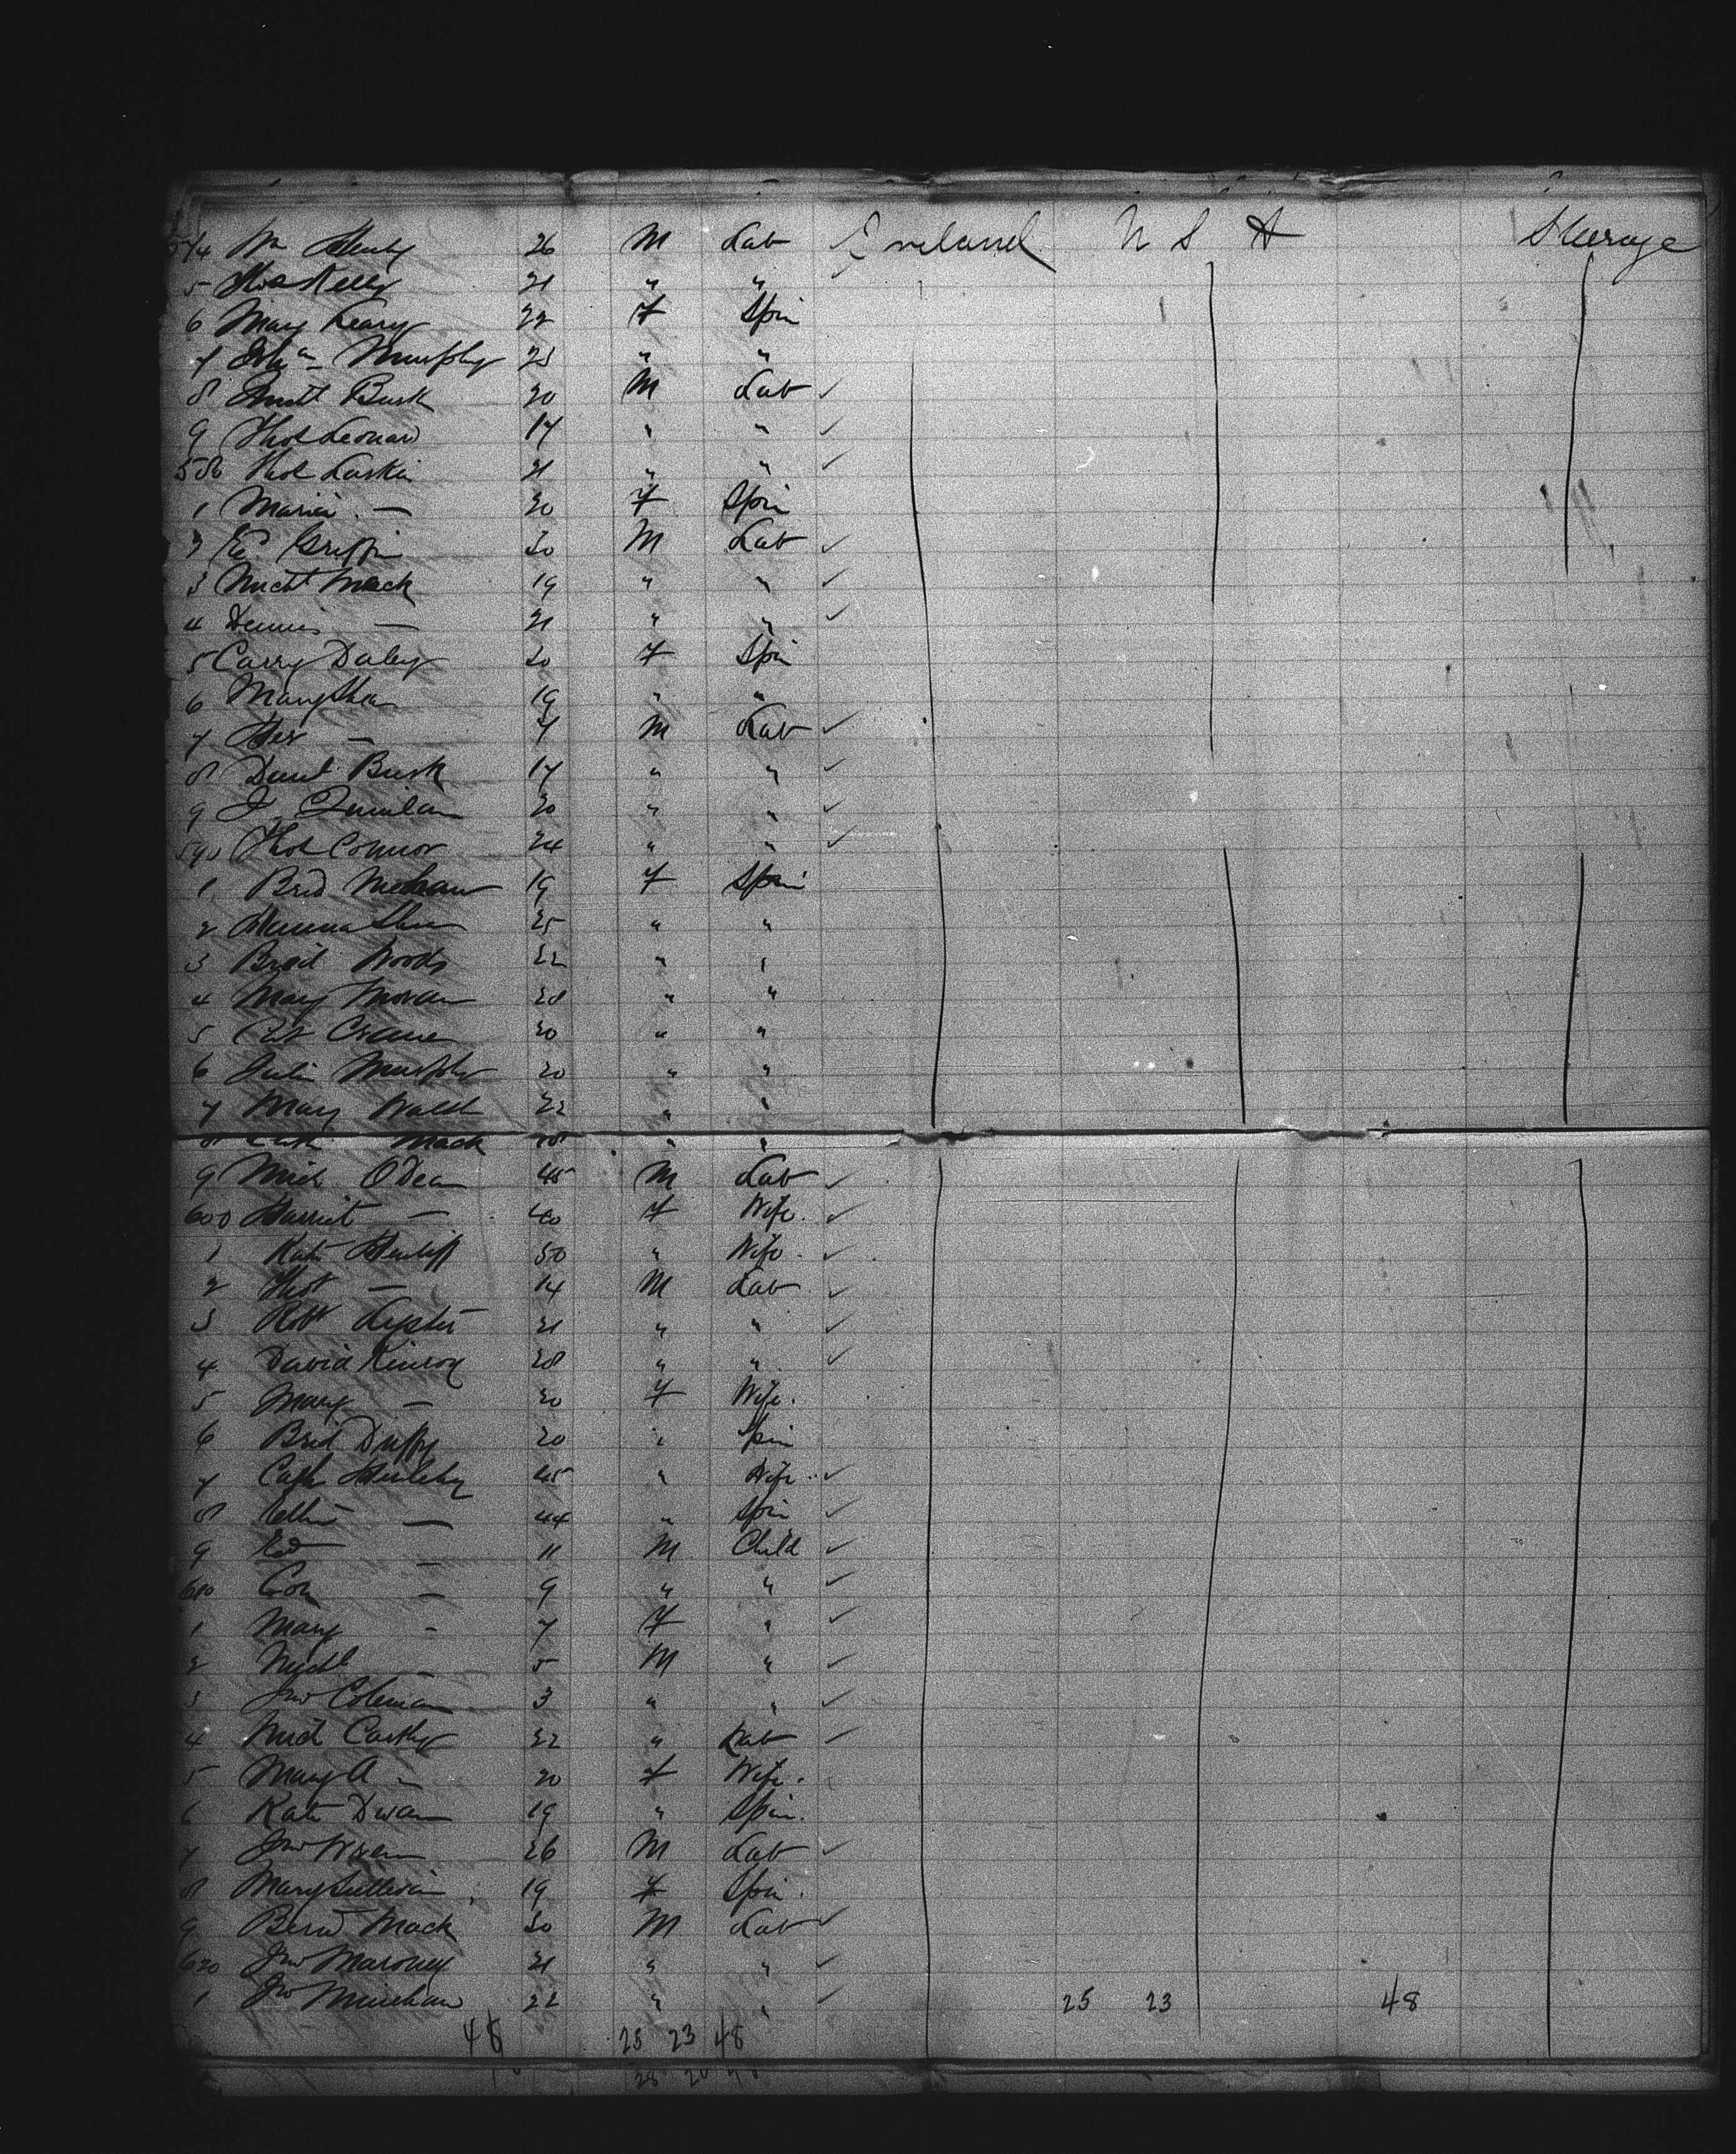 574 Wm 26 M Lab ✓ Ireland U S A Steerage
5 Thos Kelly 21 " "
6 Mary Leary 22 F Spin
7 Murphy 23 " "
8 Burk 20 M Lab ✓
9 Thos Leonard 17 " " ✓
580 Thos Larkin 21 " " ✓
1 Maria — 20 F Spin
2 Ed. Griffin 20 M Lab ✓
3 Michl Mack 19 " " ✓
4 Dennis — 21 " " ✓
5 Carry Daley 20 F Spin
6 Mary Shea 19 " "
7 — 7 M Lab ✓
8 Danl Burk 17 " " ✓
9 J. Quinlan 20 " " ✓
590 Thos Connor 24 " " ✓
1 Brid 19 F Spin
2 Hanna Shea 25 " "
3 Brid Woods 22 " "
4 Mary Moran 28 " "
5 Cat Crane 20 " "
6 Julia Murphy 20 " "
7 Mary Walsh 22 " "
8 Mack 18 " "
9 Mich ODea 45 M Lab ✓
600 Harriet — 40 F Wife. ✓
1 Kate 50 " Wife. ✓
2 Thos — 14 M Lab ✓
3 Robt Lyster 21 " " ✓
4 David 28 " " ✓
5 Mary — 20 F Wife.
6 Brid Duffy 20 " Spin
7 Cath 45 " Wife ✓
8 — 44 " Spin ✓
9 Ed — 11 M Child ✓
610 Con — 9 " " ✓
1 Mary - 7 F " ✓
2 Michl — 5 M " ✓
3 Jno Coleman 3 " " ✓
4 Mich Carthy 22 " Lab ✓
5 Mary A — 20 F Wife.
6 Kate Dwan 19 " Spin.
7 Jno 26 M Lab ✓
8 Mary Sullivan 19 F Spin.
9 Bernd Mack 20 M Lab ✓
620 Jno Maroney 21 " " ✓
1 Jno Minehan 22 " " ✓ 25 23 48
48 25 23 48